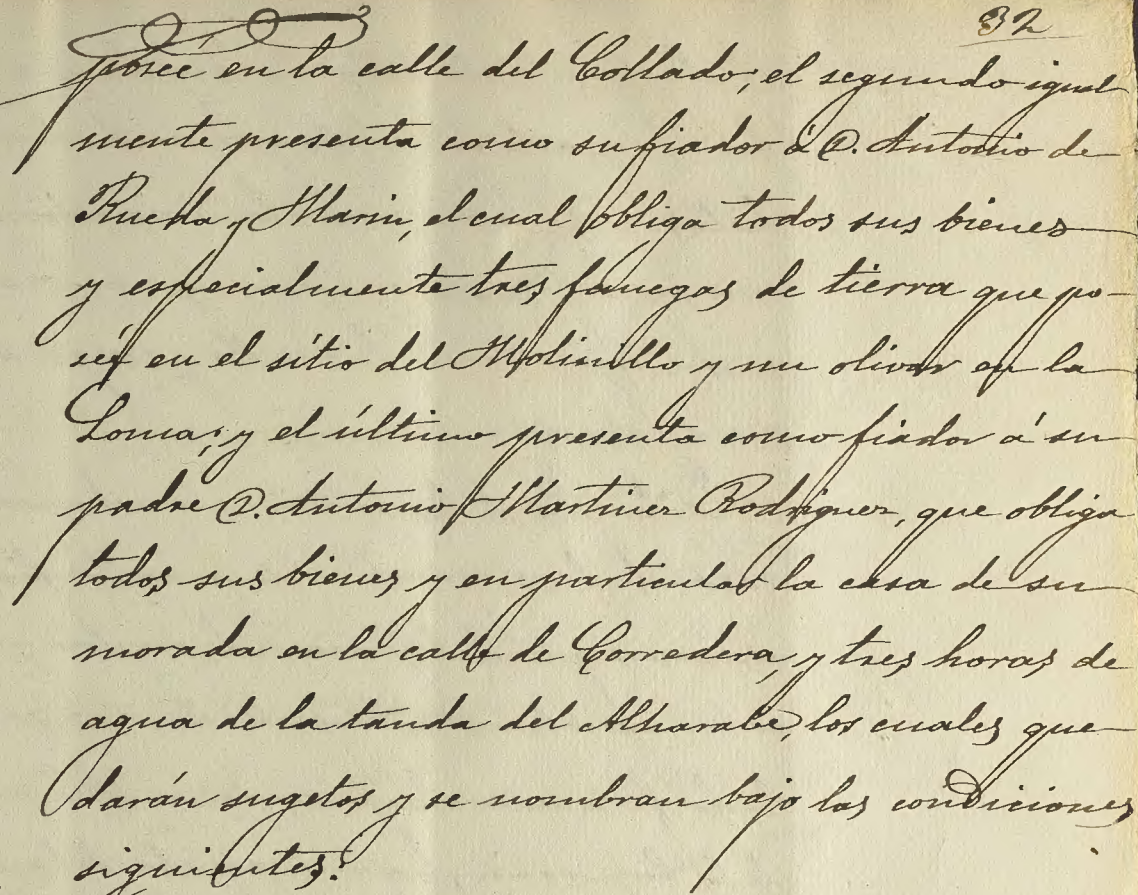 32
poseé en la calle del Collado; el segundo igual
mente presenta como su fiador á D. Antonio de
Rueda y Marin, el cual obliga todos sus bienes
y especialmente tres fanegas de tierra que po-
seé en el sítio del Molinillo y un olivar en la
Loma; y el último presenta como fiador á su
padre D. Antonio Martinez Rodriguez, que obliga
todos sus bienes y en particular la casa de su
morada en la calle de Corredera, y tres horas de
agua de la tanda del Alharabe, los cuales que
darán sugetos y se nombran bajo las condiciones
siguientes: